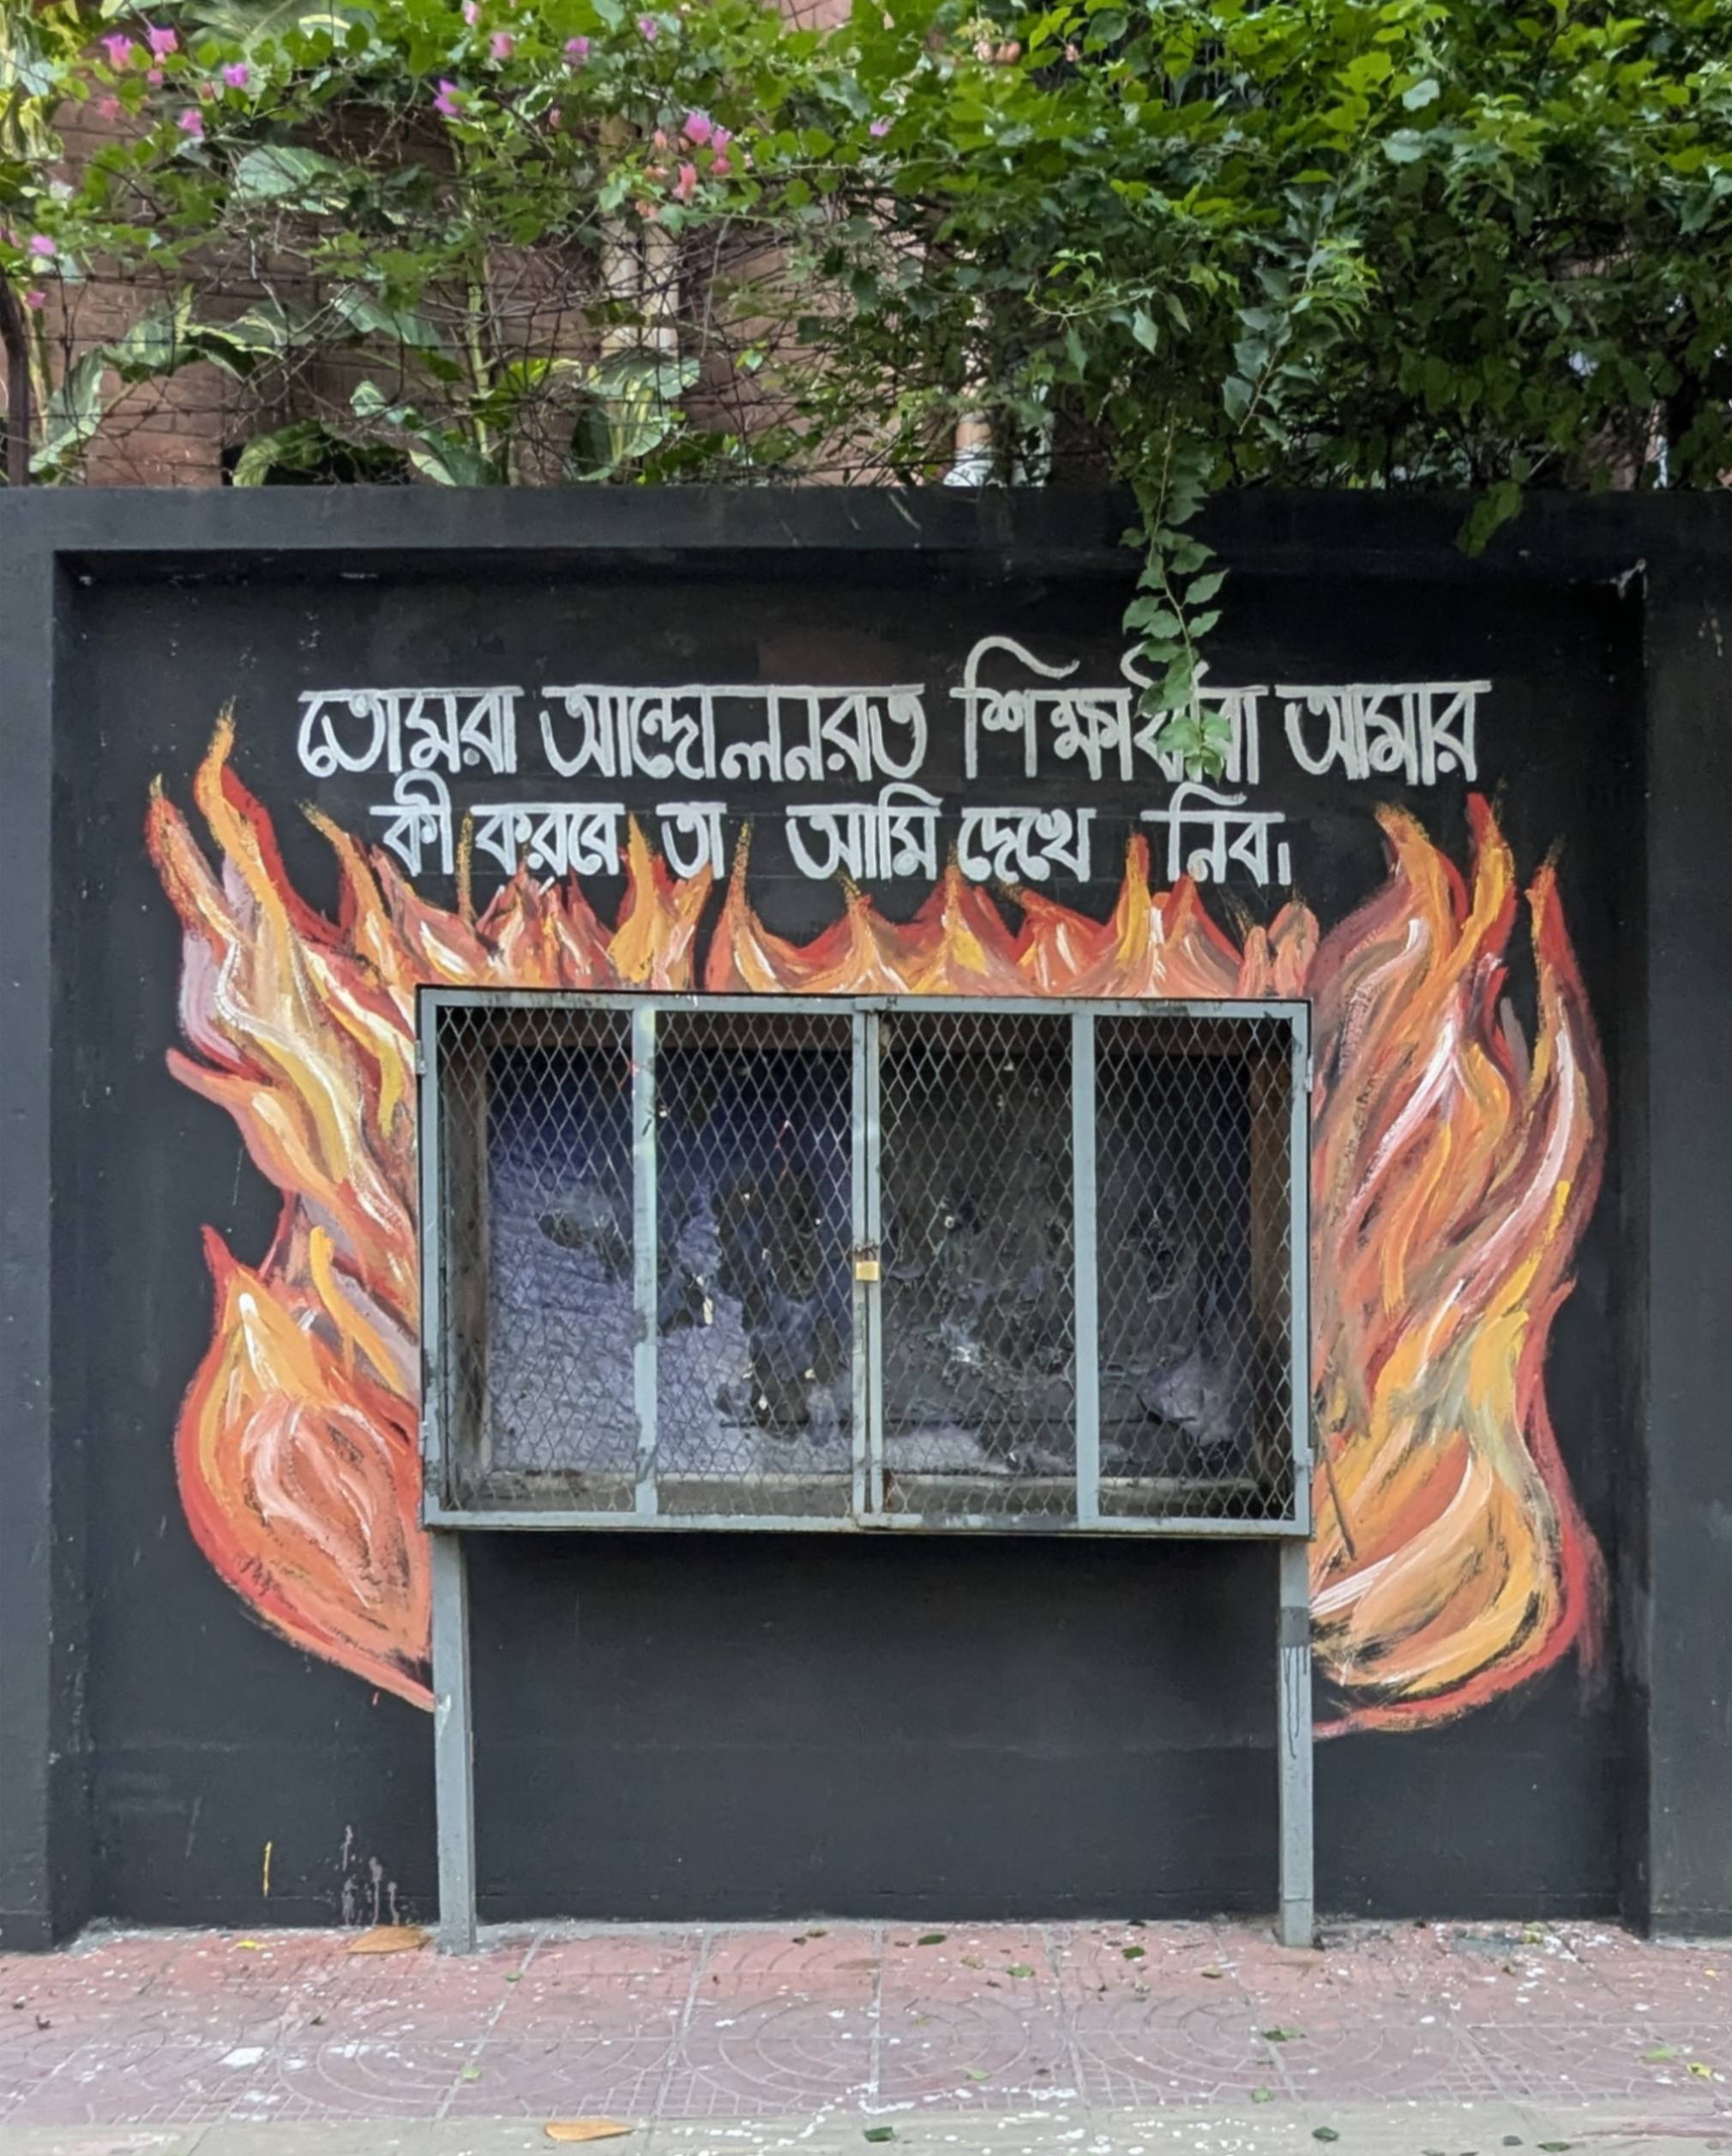 তোমরা আন্দোলনরত শিক্ষার্থীরা আমার
কী করবে তা আমি দেখে নিব।